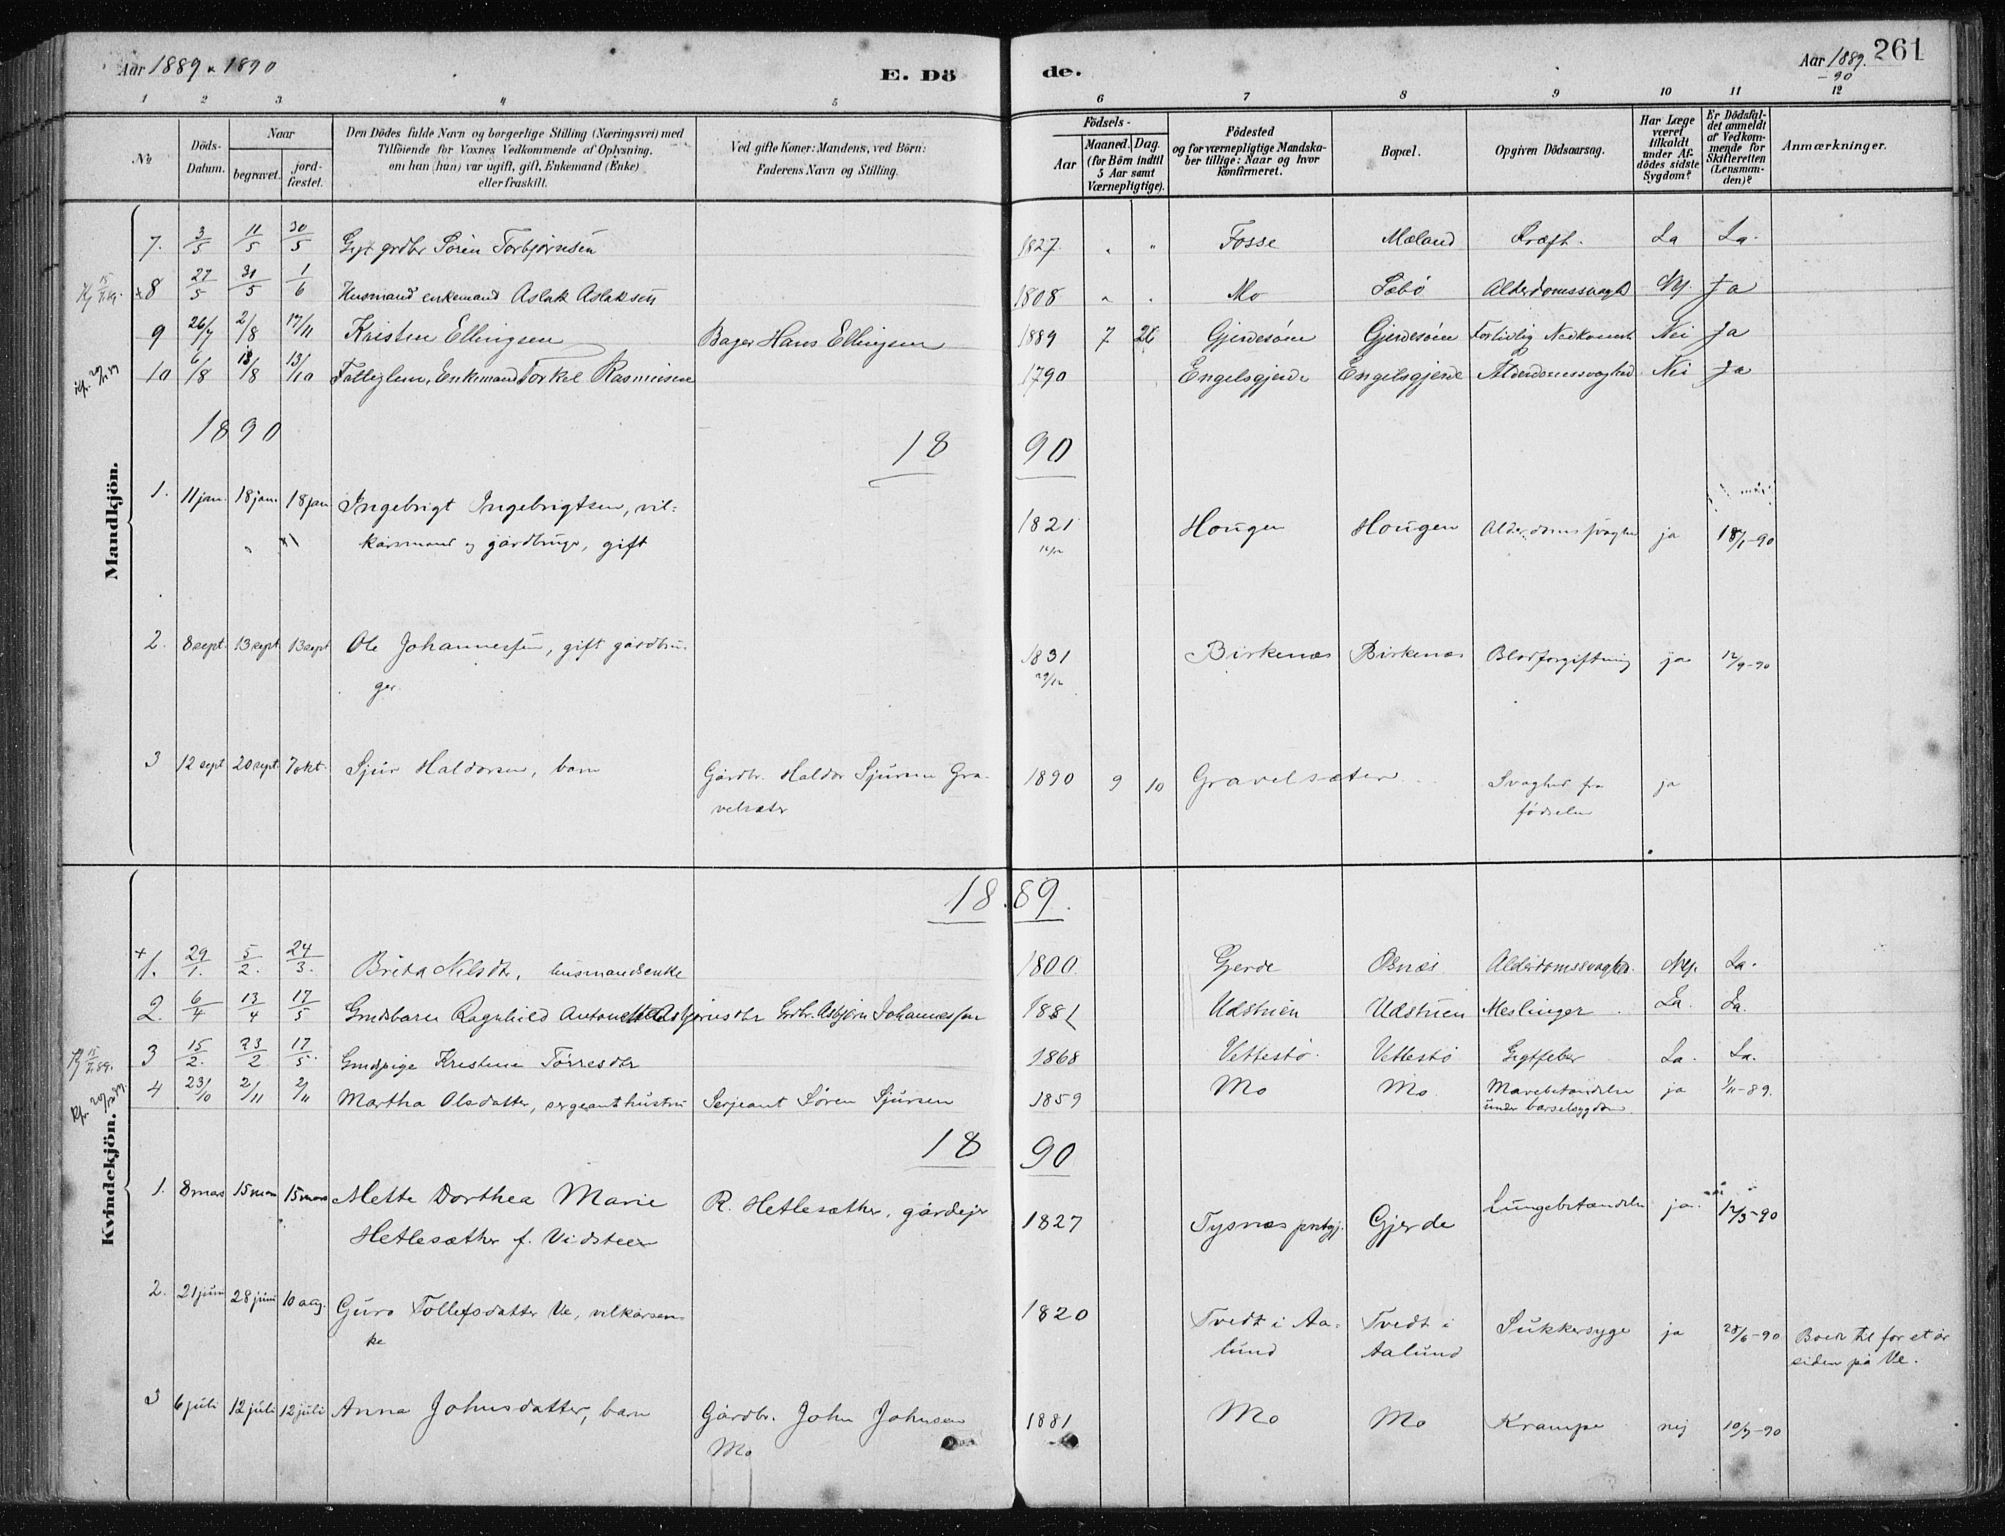 Aar 1889 & 1890
E. Dö de.
Aar 1889. -90
261
1 2 3 4 5 6 7 8 9 10 11 12
No
Döds-Datum.
Naar
begravet.
jord-fæstet.
Den Dödes fulde Navn og borgerlige Stilling (Næringsvei) med
Tilföiende for Voxnes Vedkommende af Oplysning.
om han (hun) var ugift, gift, Enkemand (Enke)
eller fraskilt.
Ved gifte Koner: Mandens, ved Börn:
Faderens Navn og Stilling.
Födsels-
Aar
Maaned. Dag.
(for Börn indtil
5 Aar samt
Værnepligtige).
Födested
og for værnepligtige Mandska-
ber tillige: Naar og hvor
konfirmeret.
Bopæl.
Opgiven Dödsaarsag.
Har Læge
været
tilkaldt
under Af-
dödes sidste
Sygdom?
Er Dödsfal-
det anmeldt
af Vedkom-
mende for
Skifteretten
(Lensman-
den)?
Anmærkninger.
Mandkjön.
7. 3/5 11/5 30/5 Gift grdbr Sören Torbjørnsen 1827 " " Fosse Mæland Kræft. Ja Ja.
8 27/5 31/5 1/6 Husmand enkemand Aslak Aslaksen 1808 " " Mo Sæbö Alderdomssvaghd Nej. Ja
9 26/7 2/8 17/11 Kristen Ellingsen Bager Hans Ellingsen 1889 7 26 Gjerdesöen Gjerdesöen Fortidlig Nedkomst Nei Ja
10 6/8 13/8 13/10 Fattiglem, Enkemand Torkel Rasmusen 1790 Engelsgjerde Engelsgjerde Alderdomssvaghed Nei Ja
1890
18 90
1. 11 jan. 18 jan. 18 jan Ingebrigt Ingebrigtsen, vil-
kårsmand og gårdbruger, gift
1821 Hougen Hougen Alderdomssvaghed ja 18/1-90
2. 8 sept. 13 sept 13 sept Ole Johannessen, gift gårdbru-
ger
1831 29/12 Birkenæs Birkenæs Blodforgiftning ja 12/9-90
3 12 sept 20 sept. 7 okt. Sjur Haldorsen, barn Gårdbr. Haldor Sjursen Gra-
velsæter
1890 9 10 Gravelsæter Svaghed fra
fødselen
ja
Kvindekjön.
18 89.
+1. 29/1. 5/2. 24/3. Brita Nilsdtr, husmandsenke 1800 Gjerde Osnæs Alderdomssvaghed. Nej. Ja.
2. 6/4 13/4 17/5 Gmdsbarn Ragnhild Antonette Asbjörnsdtr Grdbr. Asbjörn Johannessen 1881 Udstuen Udstuen Meslinger Ja. Ja.
3 15/2. 23/2 17/5. Gmdpige Kristine Törresdtr 1868 Vettestö Vettestö Gigtfeber Ja. Ja.
4 23/10 2/11 2/11 Martha Olsdatter, sergeanthustru Serjeant Sören Sjursen 1859 Mo Mo Mavebetændelse
under barselsygdom
ja 1/11-89.
18 90
1. 8 mars 15 mars 15 mars Mette Dorthea Marie
Hetlesæther f. Vidsteen
R. Hetlesæther, gårdejer
1827 Tysnæs prstgj. Gjerde Lungebetændelse ja. 12/3-90
2. 21 juni 28 juni 10 aug. Guro Tollefsdatter Ve, vilkårsen-
ke
1820 Tvedt i Aa-
lund
Tvedt i
Aalund
Sukkersyge ja 28/6-90 Boede til for et år
siden på Ve.
3 6 juli 12 juli 12 juli Anna Johnsdatter, barn Gårdbr. John Johnsen
Mo
1881 Mo Mo Krampe nej 10/7-90